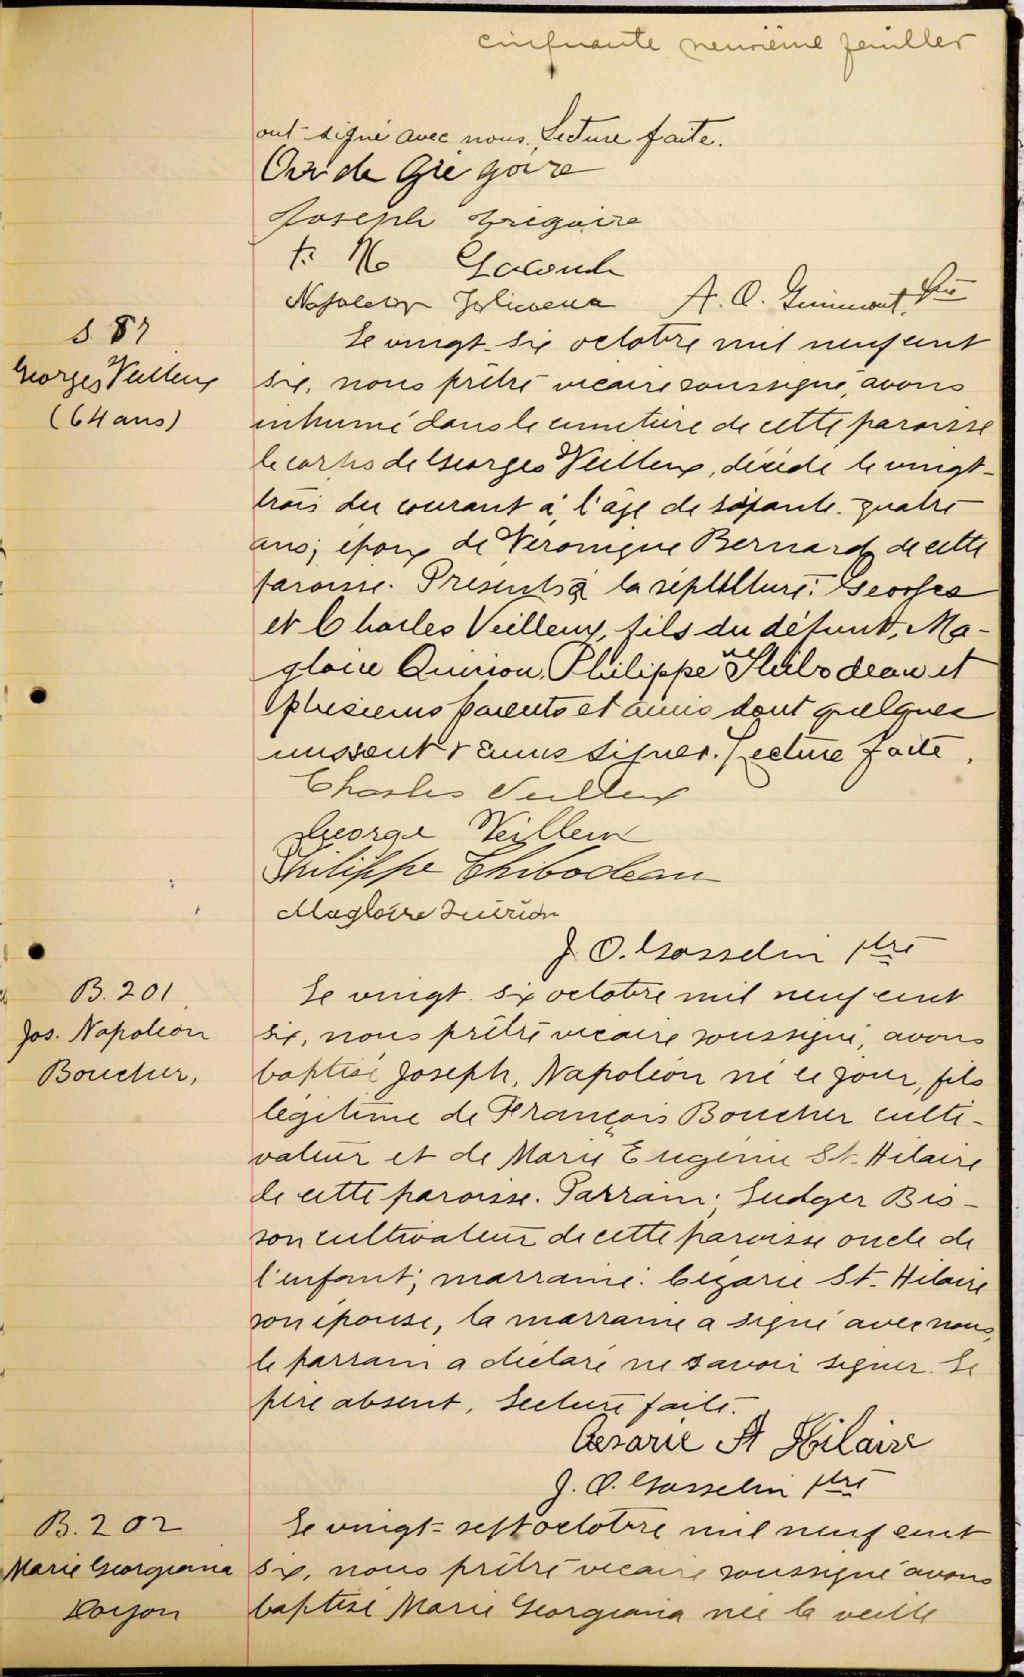 cinquante neuvième feuillet
ont signé avec nous. Lecture faite.
Grégoire
Joseph Grégoire
Napoléon Jolicoeur A. O. Guimont, Ptre
S. 87
Georges Veilleux
(64 ans)
Le vingt-six octobre mil neuf cent
six, nous prêtre vicaire soussigné, avons
inhumé dans le cimetière de cette paroisse
le corps de Georges Veilleux, décédé le vingt-
trois du courant à l'âge de soixante-quatre
ans; époux de Véronique Bernard de cette
paroisse. Présents à la sépulture: Georges
et Charles Veilleux, fils du défunt, Ma-
gloire Quirion, Philippe Thibodeau et
plusieurs parents et amis dont quelques
uns sont venus signer. Lecture faite.
Charles Veilleux
George Veilleux
Philippe Thibodeau
Magloire Quirion
J. O. Gosselin ptre
B. 201
Jos. Napoléon
Boucher,
Le vingt-six octobre mil neuf cent
six, nous prêtre vicaire soussigné, avons
baptisé Joseph, Napoléon né ce jour, fils
légitime de François Boucher culti-
vateur et de Marie Eugénie St-Hilaire
de cette paroisse. Parrain; Ludger Bis-
son cultivateur de cette paroisse oncle de
l'enfant; marraine: Cézarie St-Hilaire
son épouse, la marraine a signé avec nous,
le parrain a déclaré ne savoir signer. Le
père absent, Lecture faite.
Cesarie St Hilaire
J. O. Gosselin ptre
B. 202
Marie Georgiana
Doyon
Le vingt-sept octobre mil neuf cent
six, nous prêtre vicaire soussigné avons
baptisé Marie Georgiana née la veille